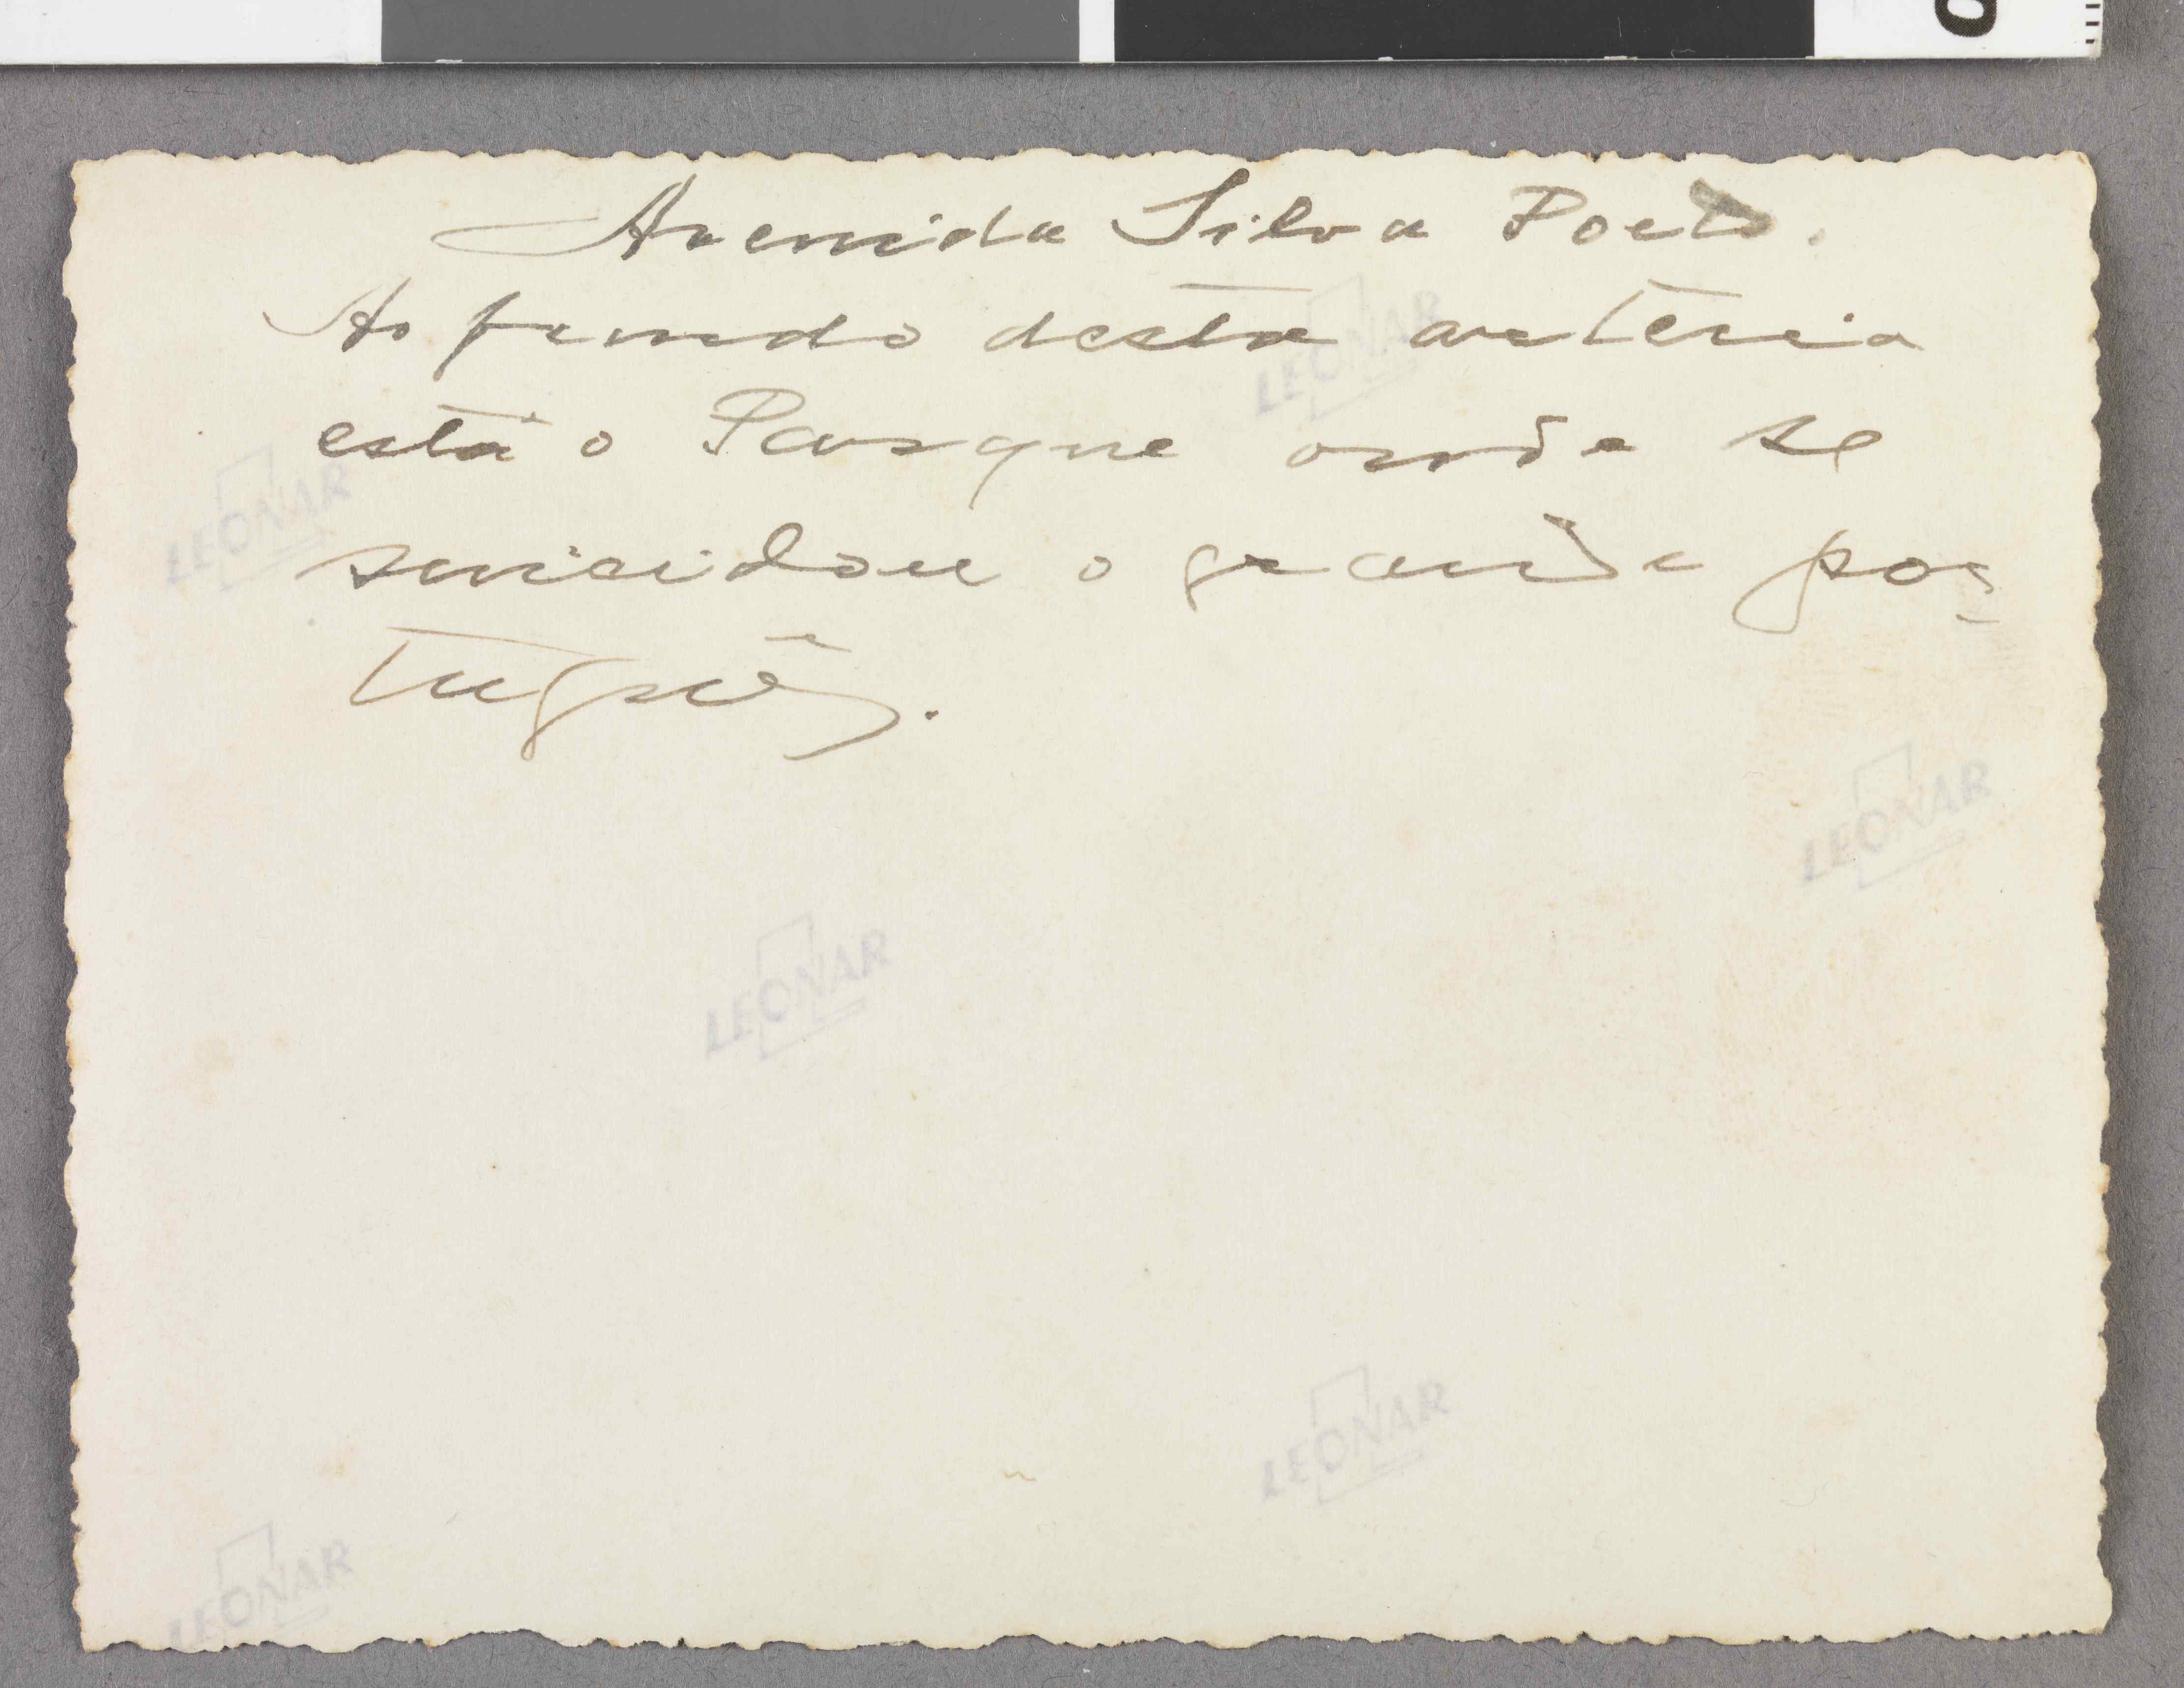 Avenida Silva Porto.
Ao fundo desta artéria
está o Parque onde se
suicidou o grande por-
tuguês.
LEONAR
LEONAR
LEONAR
LEONAR
LEONAR
LEONAR